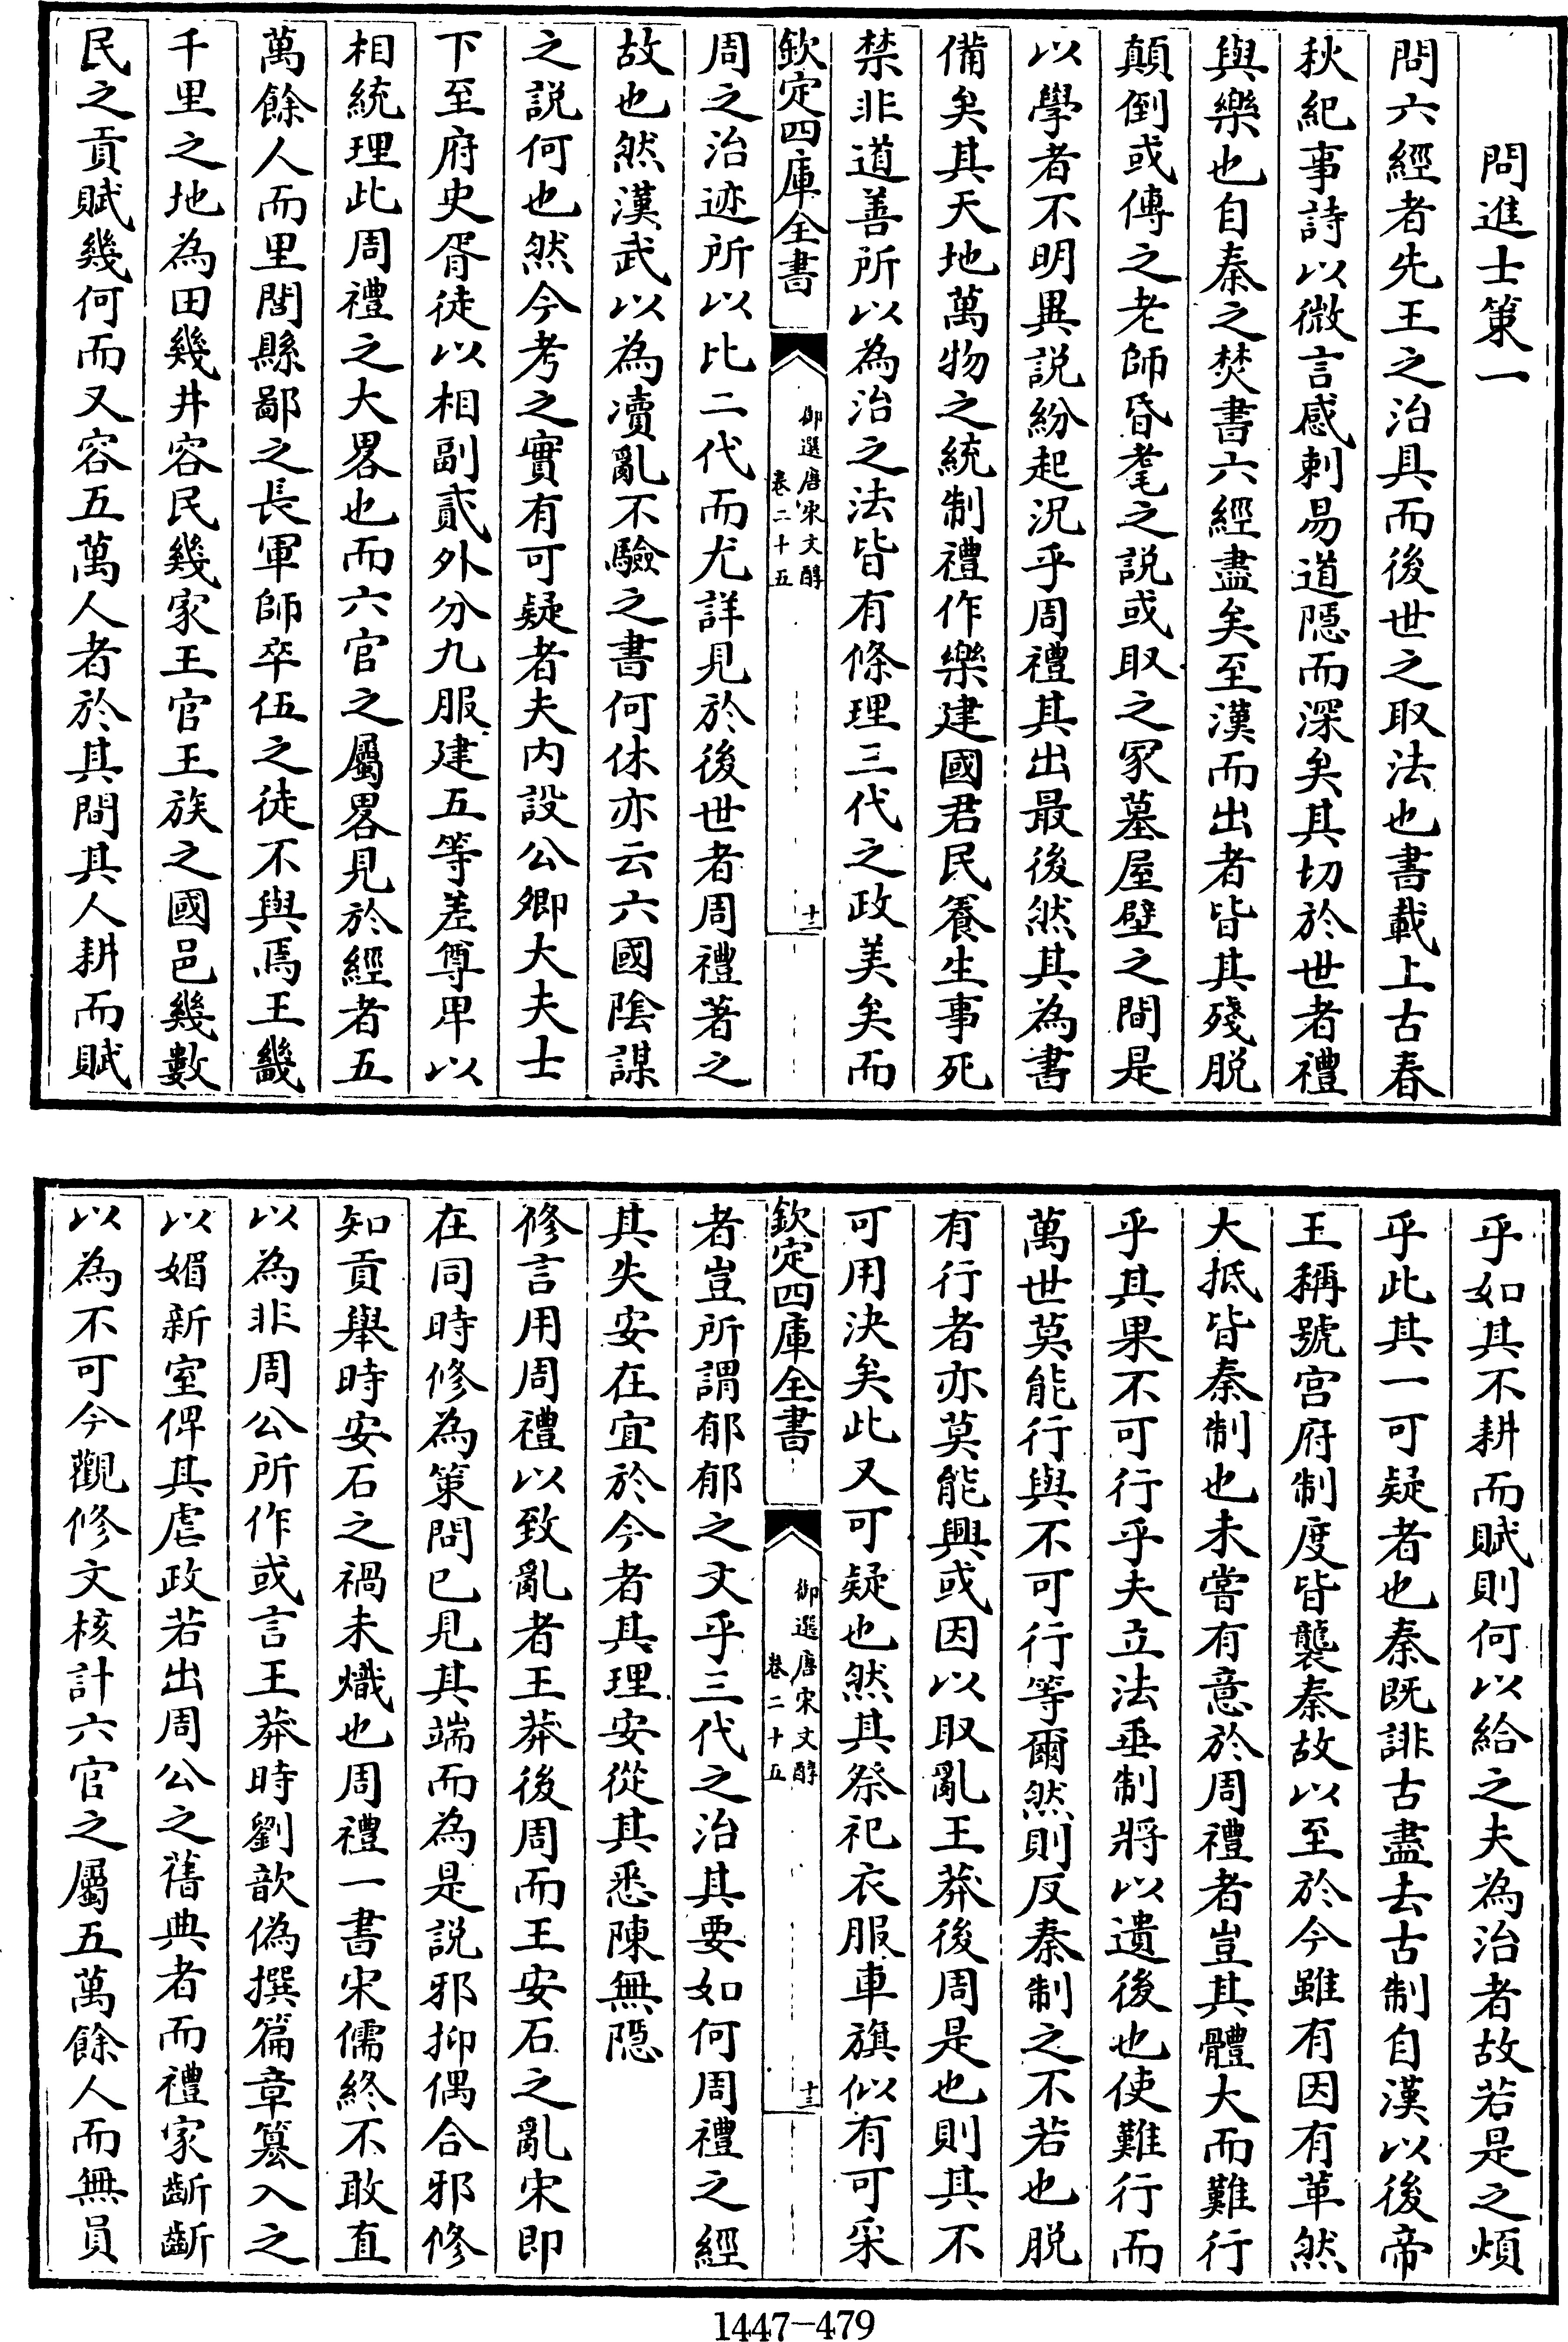 問進士策一
問六經者先王之治具而後世之取法也書載上古春
秋紀事詩以微言感刺易道隱而深矣其切於世者禮
與樂也自秦之焚書六經盡矣至漢而出者皆其殘脱
顛倒或傳之老師昏耄之説或取之冢墓屋壁之間是
以學者不明異説紛起況乎周禮其出最後然其為書
備矣其天地萬物之統制禮作樂建國君民養生事死
禁非道善所以為治之法皆有條理三代之政美矣而
欽定四庫全書
御選唐宋文醇
卷二十五
十二
周之治迹所以比二代而尤詳見於後世者周禮著之
故也然漢武以為瀆亂不驗之書何休亦云六國陰謀
之説何也然今考之實有可疑者夫内設公卿大夫士
下至府史胥徒以相副貳外分九服建五等差尊卑以
相統理此周禮之大畧也而六官之屬畧見於經者五
萬餘人而里閭縣鄙之長軍師卒伍之徒不與焉王畿
千里之地為田幾井容民幾家王官王族之國邑幾數
民之貢賦幾何而又容五萬人者於其間其人耕而賦
乎如其不耕而賦則何以給之夫為治者故若是之煩
乎此其一可疑者也秦既誹古盡去古制自漢以後帝
王稱號宫府制度皆襲秦故以至於今雖有因有革然
大抵皆秦制也未嘗有意於周禮者豈其體大而難行
乎其果不可行乎夫立法垂制將以遺後也使難行而
萬世莫能行與不可行等爾然則反秦制之不若也脱
有行者亦莫能興或因以取亂王莽後周是也則其不
可用決矣此又可疑也然其祭祀衣服車旗似有可采
欽定四庫全書
御選唐宋文醇
卷二十五
十三
者豈所謂郁郁之文乎三代之治其要如何周禮之經
其失安在宜於今者其理安從其悉陳無隱
修言用周禮以致亂者王莽後周而王安石之亂宋即
在同時修為策問已見其端而為是説邪抑偶合邪修
知貢舉時安石之禍未熾也周禮一書宋儒終不敢直
以為非周公所作或言王莽時劉歆偽撰篇章簒入之
以媚新室俾其虐政若出周公之舊典者而禮家齗齗
以為不可今觀修文核計六官之屬五萬餘人而無員
1447-479